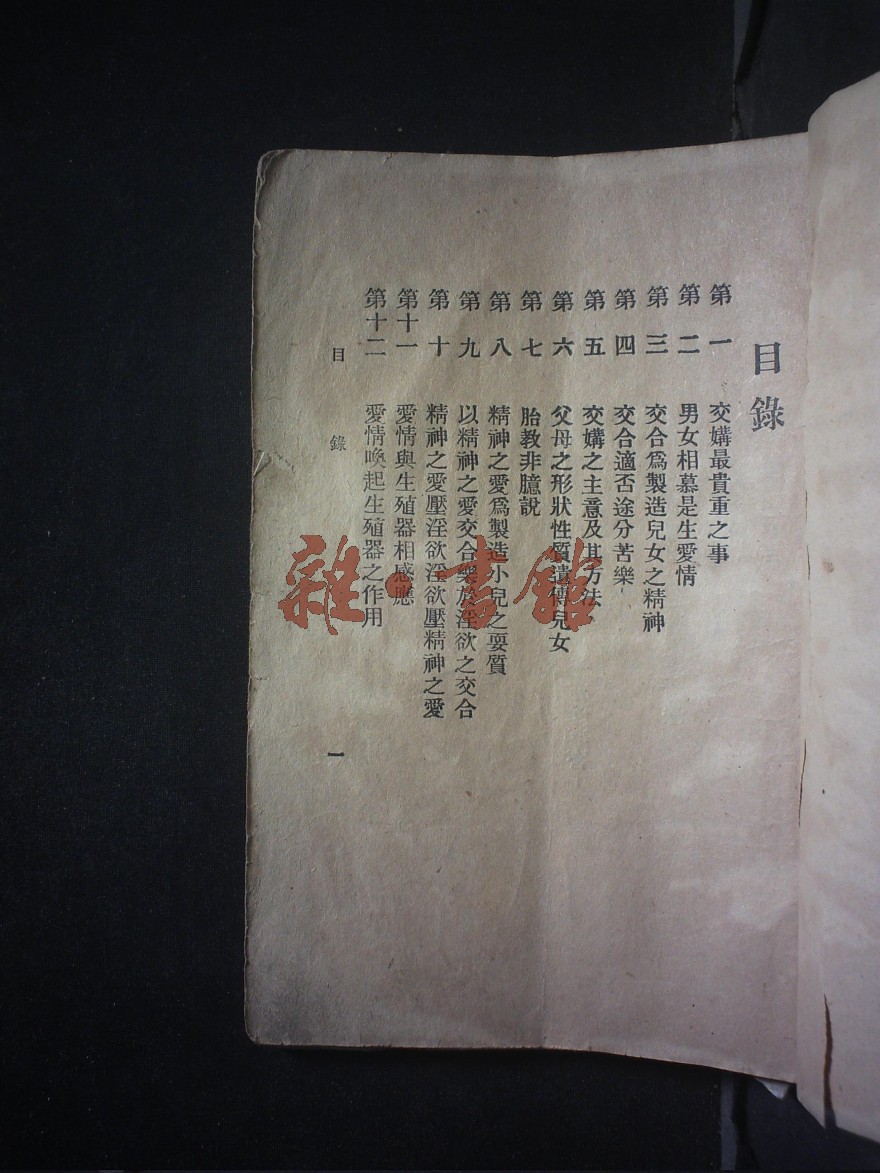 目錄
第一 交媾最貴重之事
第二 男女相慕是生愛情
第三 交合爲製造兒女之精神
第四 交合適否途分苦樂
第五 交媾之主意及其方法
第六 父母之形狀性質遺傳兒女
第七 胎教非臆說
第八 精神之愛爲製造小兒之要質
第九 以精神之愛交合樂於淫欲之交合
第十 精神之愛壓淫欲淫欲壓精神之愛
第十一 愛情與生殖器相感應
第十二 愛情喚起生殖器之作用
目錄 一
雜·書館